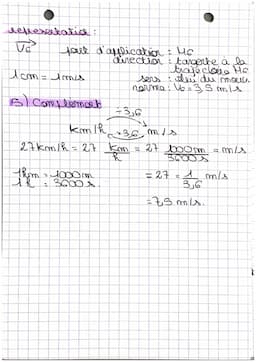 representation :
Vc point d'application : Mc
direction : tangente à la
trajectoire Mc
1cm = 1m/s sens : celui du mouv.
norme : Vc = 3,5 m/s
B) Complément
÷3,6
km/h ×3,6 m/s
27km/h = 27 km/h = 27 1000m/3600s = m/s
1km = 1000m = 27 = 1/3,6 m/s
1h = 3600s.
= 7,5 m/s.